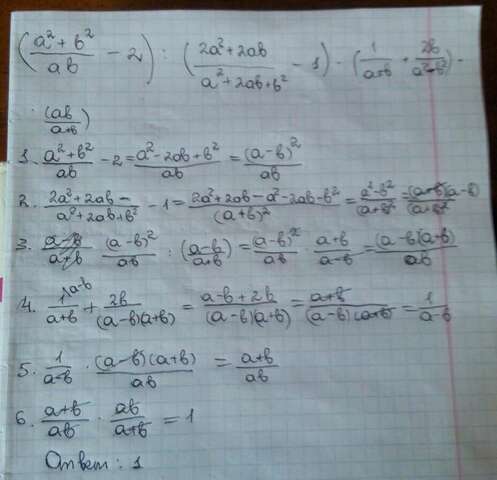 ((a²+b²)/(ab) - 2) : ((2a²+2ab)/(a²+2ab+b²) - 1) · (1/(a+b) + 2b/(a²-b²)) ·
(ab/(a+b))
1. (a²+b²)/(ab) - 2 = (a²-2ab+b²)/(ab) = (a-b)²/(ab)
2. (2a²+2ab)/(a²+2ab+b²) - 1 = (2a²+2ab-a²-2ab-b²)/(a+b)² = (a²-b²)/(a+b)² = (a+b)(a-b)/(a+b)²
3. (a-b)/(a+b) (a-b)²/(ab) : (a-b)/(a+b) = (a-b)²/(ab) · (a+b)/(a-b) = (a-b)(a+b)/(ab)
4. 1\a-b/(a+b) + 2b/((a-b)(a+b)) = (a-b+2b)/((a-b)(a+b)) = (a+b)/((a-b)(a+b)) = 1/(a-b)
5. 1/(a-b) · (a-b)(a+b)/(ab) = (a+b)/(ab)
6. (a+b)/(ab) · ab/(a+b) = 1
Ответ: 1